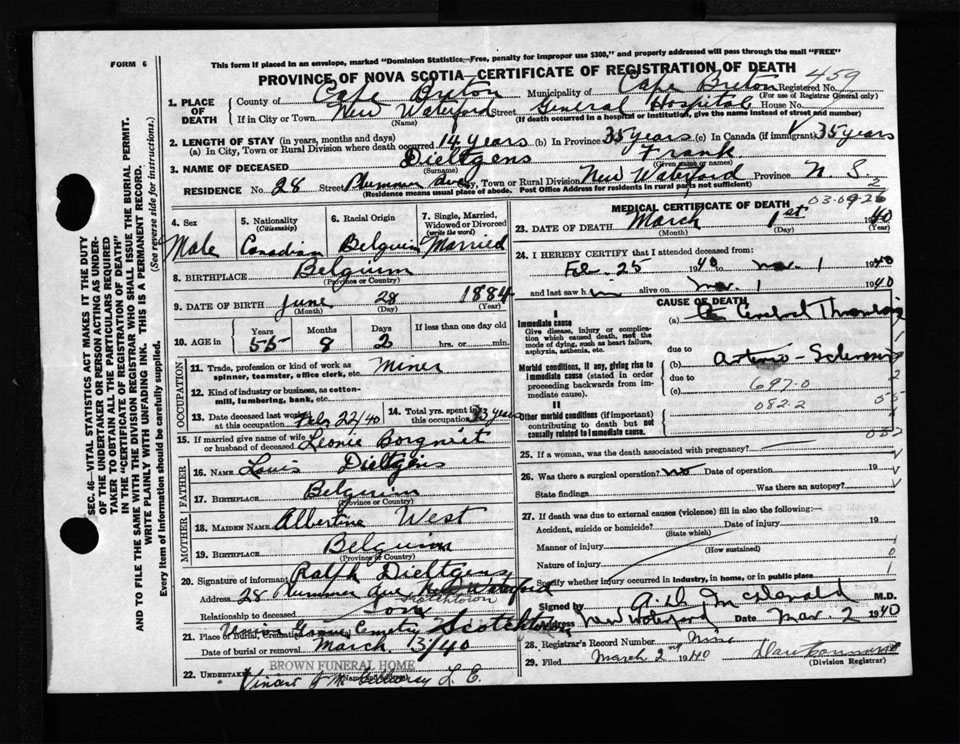 FORM 6
This form if placed in an envelope, marked "Dominion Statistics—Free, penalty for improper use $300," and properly addressed will pass through the mail "FREE"
PROVINCE OF NOVA SCOTIA—CERTIFICATE OF REGISTRATION OF DEATH
1. PLACE OF DEATH County of Cape Breton Municipality of Cape Breton Registered No. 459
(For use of Registrar General only)
If in City or Town New Waterford Street General Hospital House No.
(Name) (If death occurred in a hospital or institution, give the name instead of street and number)
2. LENGTH OF STAY (in years, months and days)
(a) In City, Town or Rural Division where death occurred 14 years (b) In Province 35 years (c) In Canada (if immigrant) 35 years
3. NAME OF DECEASED Dieltgens Frank
(Surname) (Given name or names)
RESIDENCE No. 28 Street Plummer Ave City, Town or Rural Division New Waterford Province N. S.
(Residence means usual place of abode. Post Office Address for residents in rural parts not sufficient)
SEC. 46—VITAL STATISTICS ACT MAKES IT THE DUTY
OF THE UNDERTAKER OR PERSON ACTING AS UNDER-
TAKER TO OBTAIN ALL THE PARTICULARS REQUIRED
IN THE "CERTIFICATE OF REGISTRATION OF DEATH"
AND TO FILE THE SAME WITH THE DIVISION REGISTRAR WHO SHALL ISSUE THE BURIAL PERMIT.
WRITE PLAINLY WITH UNFADING INK. THIS IS A PERMANENT RECORD.
Every item of information should be carefully supplied. (See reverse side for instructions.)
4. Sex Male
5. Nationality (Citizenship) Canadian
6. Racial Origin Belguim
7. Single, Married, Widowed or Divorced (write the word) Married
8. BIRTHPLACE Belgium
(Province or Country)
9. DATE OF BIRTH June 28 1884
(Month) (Day) (Year)
10. AGE in Years 55 Months 8 Days 2 If less than one day old hrs. or min.
OCCUPATION
11. Trade, profession or kind of work as spinner, teamster, office clerk, etc. Miner
12. Kind of industry or business, as cotton-mill, lumbering, bank, etc.
13. Date deceased last worked at this occupation Feb 22/40 14. Total yrs. spent in this occupation 33 years
15. If married give name of wife or husband of deceased Leonie
FATHER
16. NAME Louis Dieltgens
17. BIRTHPLACE Belguim
(Province or Country)
MOTHER
18. MAIDEN NAME Albertine West
19. BIRTHPLACE Belguim
(Province or Country)
20. Signature of informant Ralph Dieltgens
Address 28 Plummer Ave New Waterford
Relationship to deceased Son
21. Place of Burial, Cremation Cemetery Scotchtown
Date of burial or removal March 3/40
BROWN FUNERAL HOME
22. UNDERTAKER
MEDICAL CERTIFICATE OF DEATH
23. DATE OF DEATH March 1st 1940
(Month) (Day) (Year)
24. I HEREBY CERTIFY that I attended deceased from:
Feb. 25 1940 to Mar. 1 1940
and last saw him alive on Mar 1 1940
CAUSE OF DEATH
I
Immediate cause
Give disease, injury or complication which caused death, not the mode of dying, such as heart failure, asphyxia, asthenia, etc.
(a) Cerebral
due to
Morbid conditions, if any, giving rise to immediate cause (stated in order proceeding backwards from immediate cause).
(b) Arterio-Sclerosis
due to
697-0
(c) 082.2
II
Other morbid conditions (if important) contributing to death but not causally related to immediate cause.
25. If a woman, was the death associated with pregnancy?
26. Was there a surgical operation? no Date of operation 19
State findings Was there an autopsy?
27. If death was due to external causes (violence) fill in also the following:—
Accident, suicide or homicide? Date of injury 19
(State which)
Manner of injury
(How sustained)
Nature of injury
Specify whether injury occurred in industry, in home, or in public place.
Signed by McDonald M.D.
Address New Waterford Date Mar. 2 1940
28. Registrar's Record Number
29. Filed March 2nd 1940
(Division Registrar)